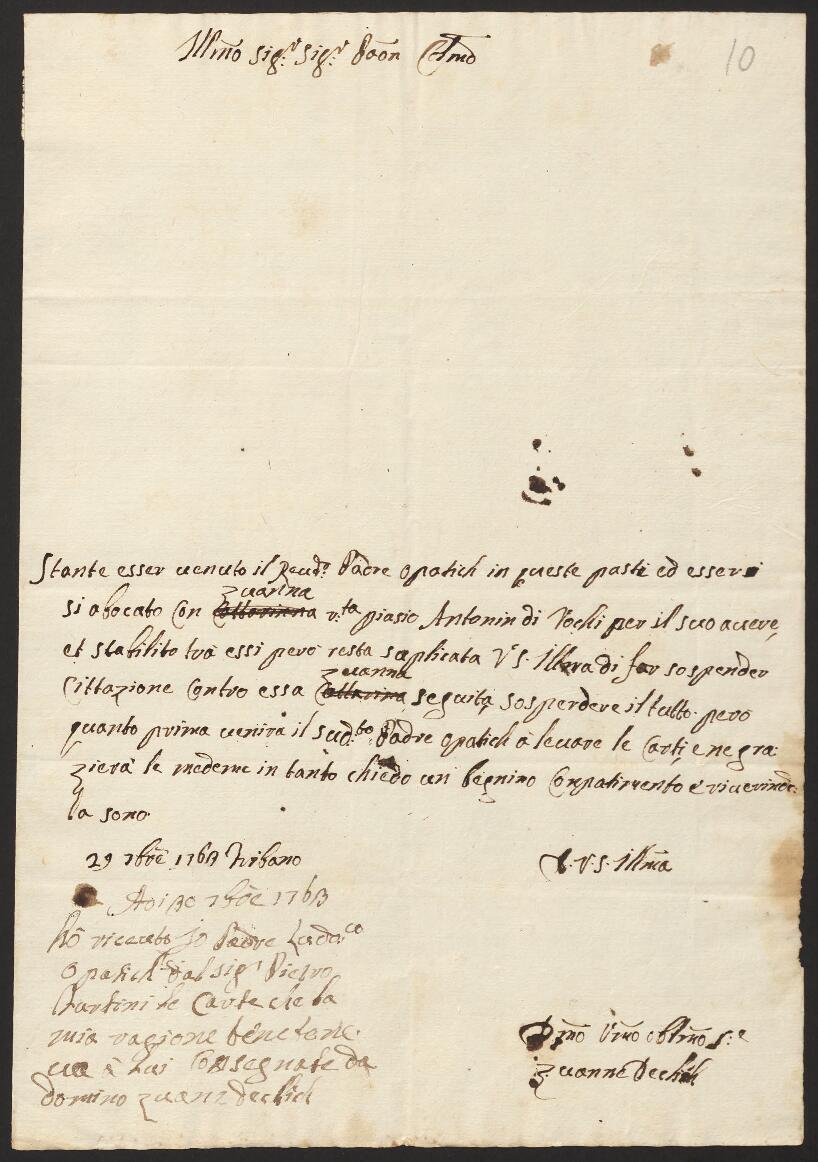 10
Illmo Sigr Sigr Pron Colmo
Stante esser venuto il Reudo Padre Opatich in queste parti ed essersi
zuanna
si abocato Con Cattarinna r.ta piasio Antonin di Vochi per il suo avere,
et stabilito trà essi però resta suplicata V S. Illma di far sospender
zuanna
Cittazione Contro essa Cattarina seguita sosperdere il tutto però
quanto prima venirà il sud.to Padre Opatich à levare le Carti e negra
zierà le mederne in tanto chiedo un begnino Conpatimento è riverindo
la sono
29 7bre 1763 Tribano
D. V. S. Illma
Adi 30 7bre 1763
hò riceuto Jo Padre Lodo.co
Opatich dal sigr Pietro
Martini le Carte che la
mia ragione
à Lui Consegnate da
domino zuane dechich
Dmo Vmo obllmo s.e
zuanne Dechich